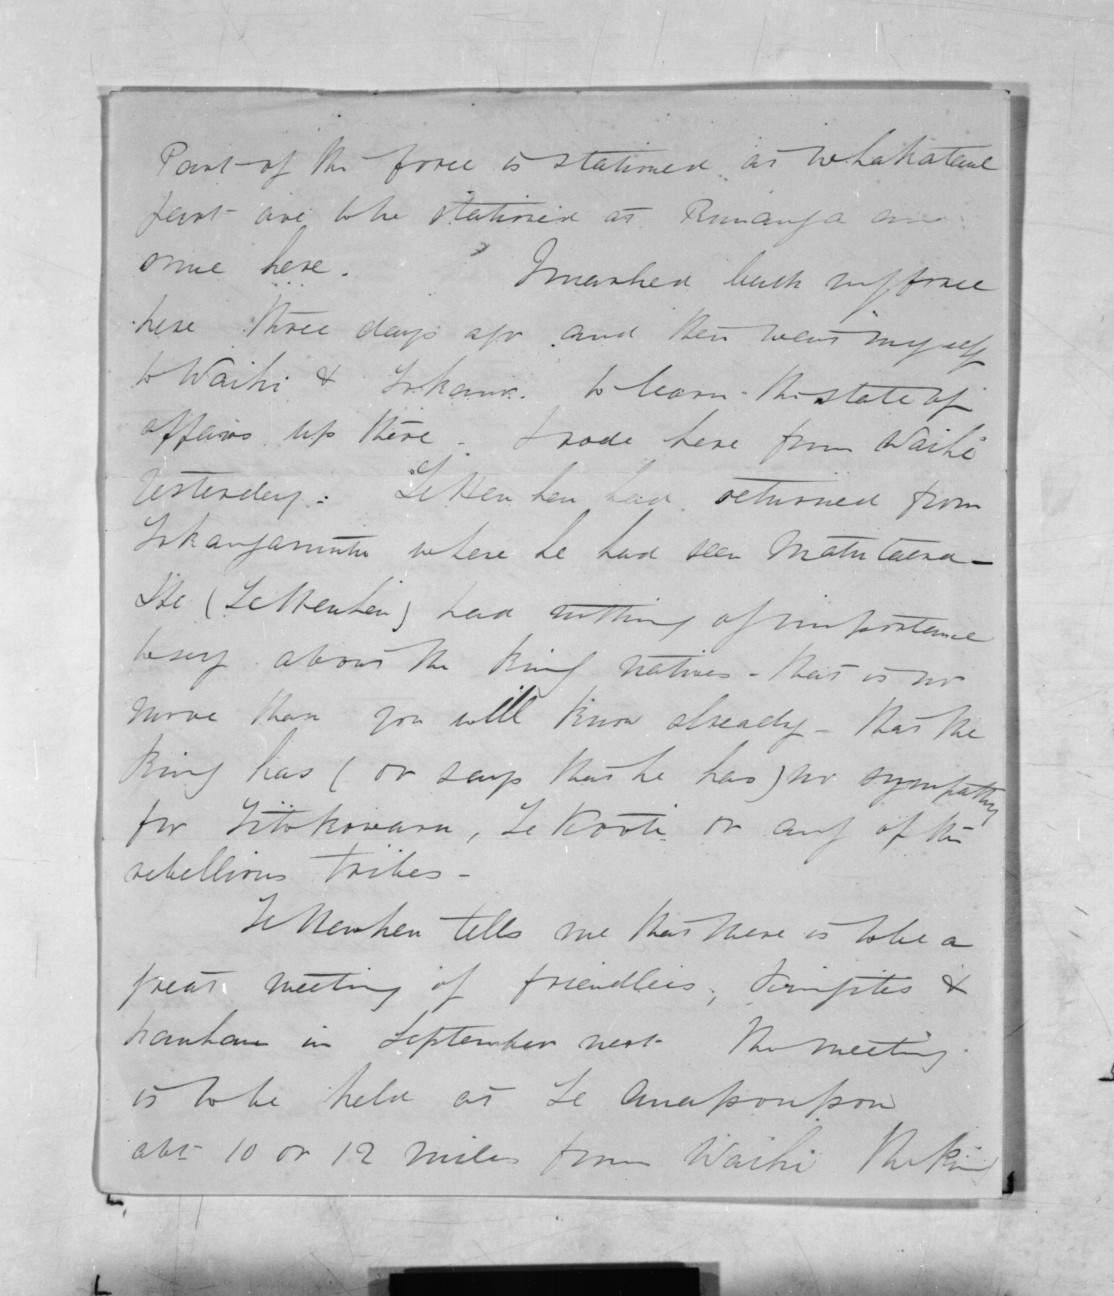 Part of the force is stationed at Whakatane
part are to be stationed at Runanga and
some here. I marched back my force
here three days ago and then went myself
to Waihi & Tokanu to learn the state of
affairs up there. I rode here from Waihi
yesterday. Te Heu heu had returned from
Tokangamutu where he had seen Matutaera -
He (Te Heuheu) had nothing of importance
to say about the King natives - that is no
more than you will know already - that the
King has (or says that he has) no sympathy
for Titokowaru, Te Kooti or any of the
rebellious tribes -
Te Heuheu tells me that there is to be a
great meeting of friendlies, Kingites &
hauhaus in September next. The meeting
is to be held at Te
abt 10 or 12 miles from Waihi The King